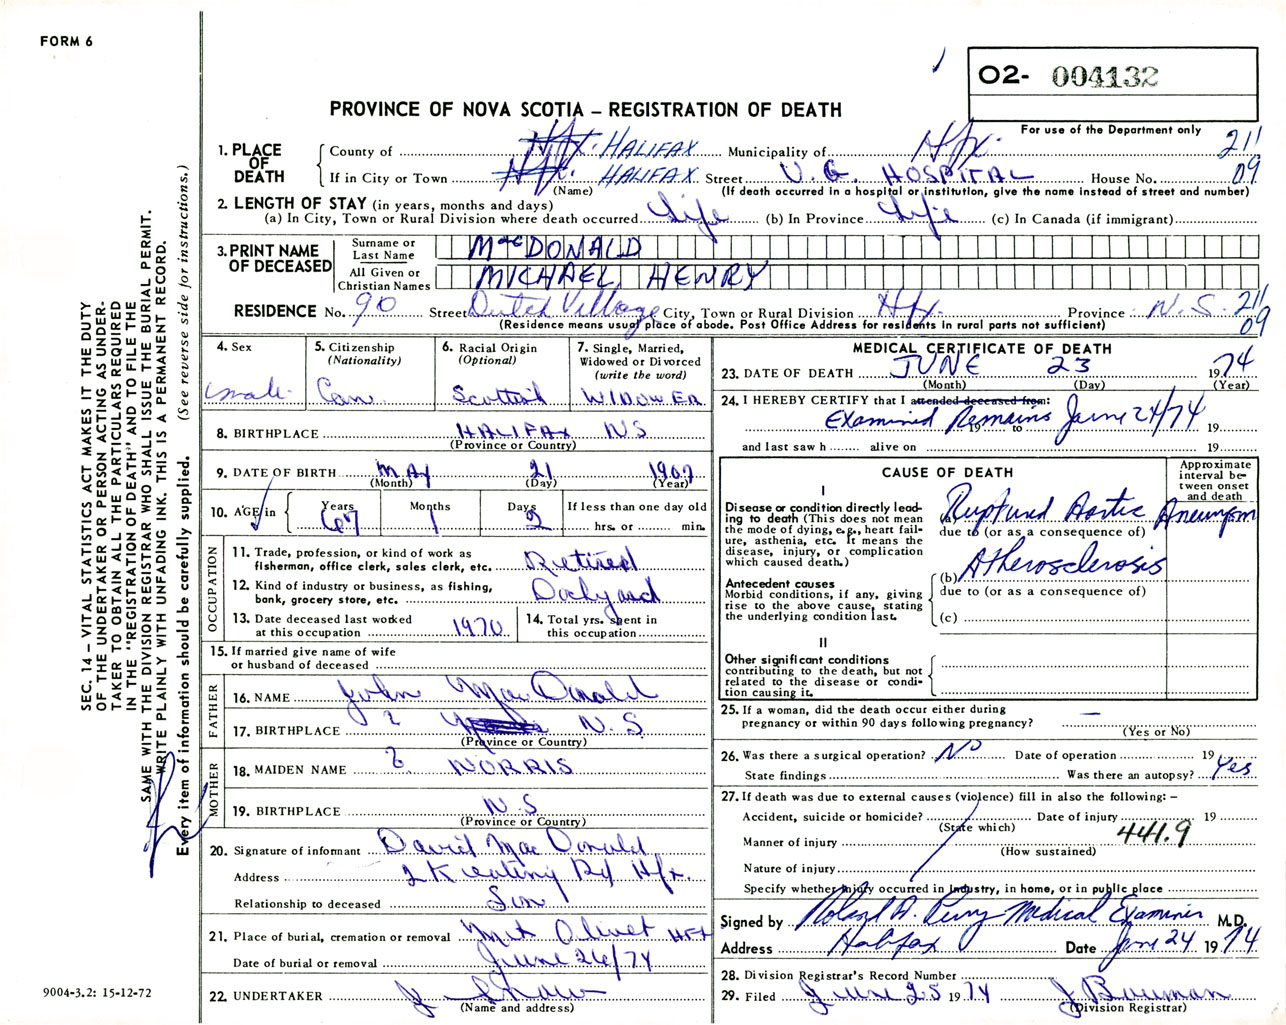 FORM 6
O2- 004132
PROVINCE OF NOVA SCOTIA – REGISTRATION OF DEATH
For use of the Department only
211
09
1. PLACE OF DEATH
County of Hfx. HALIFAX Municipality of Hfx.
If in City or Town Hfx. HALIFAX Street V. G. HOSPITAL House No.
(Name) (If death occurred in a hospital or institution, give the name instead of street and number)
2. LENGTH OF STAY (in years, months and days)
(a) In City, Town or Rural Division where death occurred Life (b) In Province Life (c) In Canada (if immigrant)
3. PRINT NAME OF DECEASED
Surname or Last Name MacDONALD
All Given or Christian Names MICHAEL HENRY
RESIDENCE No. 90 Street Dutch Village City, Town or Rural Division Hfx. Province N.S. 211
09
(Residence means usual place of abode. Post Office Address for residents in rural parts not sufficient)
4. Sex
male
5. Citizenship
(Nationality)
Can
6. Racial Origin
(Optional)
Scottish
7. Single, Married, Widowed or Divorced
(write the word)
WIDOWER
8. BIRTHPLACE HALIFAX NS
(Province or Country)
9. DATE OF BIRTH MAY 21 1907
(Month) (Day) (Year)
10. AGE in
Years 67
Months 1
Days 2
If less than one day old
hrs. or min.
OCCUPATION
11. Trade, profession, or kind of work as fisherman, office clerk, sales clerk, etc. Retired
12. Kind of industry or business, as fishing, bank, grocery store, etc. Dockyard
13. Date deceased last worked at this occupation 1970
14. Total yrs. spent in this occupation
15. If married give name of wife or husband of deceased
FATHER
16. NAME John MacDonald
17. BIRTHPLACE ? N.S.
(Province or Country)
MOTHER
18. MAIDEN NAME ? NORRIS
19. BIRTHPLACE N.S
(Province or Country)
20. Signature of informant David MacDonald
Address 2 Keating Rd Hfx.
Relationship to deceased Son
21. Place of burial, cremation or removal Mt Olivet HFX
Date of burial or removal June 26/74
22. UNDERTAKER J Snow
(Name and address)
MEDICAL CERTIFICATE OF DEATH
23. DATE OF DEATH JUNE 23 1974
(Month) (Day) (Year)
24. I HEREBY CERTIFY that I attended deceased from:
Examined Remains June 24/74
19 to 19
and last saw h alive on 19
CAUSE OF DEATH
Approximate interval between onset and death
I
Disease or condition directly leading to death (This does not mean the mode of dying, e.g., heart failure, asthenia, etc. It means the disease, injury, or complication which caused death.)
(a) Ruptured Aortic Aneurysm
due to (or as a consequence of)
Antecedent causes
Morbid conditions, if any, giving rise to the above cause, stating the underlying condition last.
(b) Atherosclerosis
due to (or as a consequence of)
(c)
II
Other significant conditions contributing to the death, but not related to the disease or condition causing it.
25. If a woman, did the death occur either during pregnancy or within 90 days following pregnancy? —
(Yes or No)
26. Was there a surgical operation? No Date of operation 19
State findings Was there an autopsy? Yes
27. If death was due to external causes (violence) fill in also the following: –
Accident, suicide or homicide? Date of injury 19
(State which)
Manner of injury 441.9
(How sustained)
Nature of injury
Specify whether injury occurred in industry, in home, or in public place
Signed by Roland A. Perry Medical Examiner M.D.
Address Halifax Date June 24 1974
28. Division Registrar's Record Number
29. Filed June 25 1974 J Bauman
(Division Registrar)
SEC. 14 – VITAL STATISTICS ACT MAKES IT THE DUTY
OF THE UNDERTAKER OR PERSON ACTING AS UNDER-
TAKER TO OBTAIN ALL THE PARTICULARS REQUIRED
IN THE "REGISTRATION OF DEATH" AND TO FILE THE
SAME WITH THE DIVISION REGISTRAR WHO SHALL ISSUE THE BURIAL PERMIT.
WRITE PLAINLY WITH UNFADING INK. THIS IS A PERMANENT RECORD.
Every item of information should be carefully supplied. (See reverse side for instructions.)
9004-3.2: 15-12-72